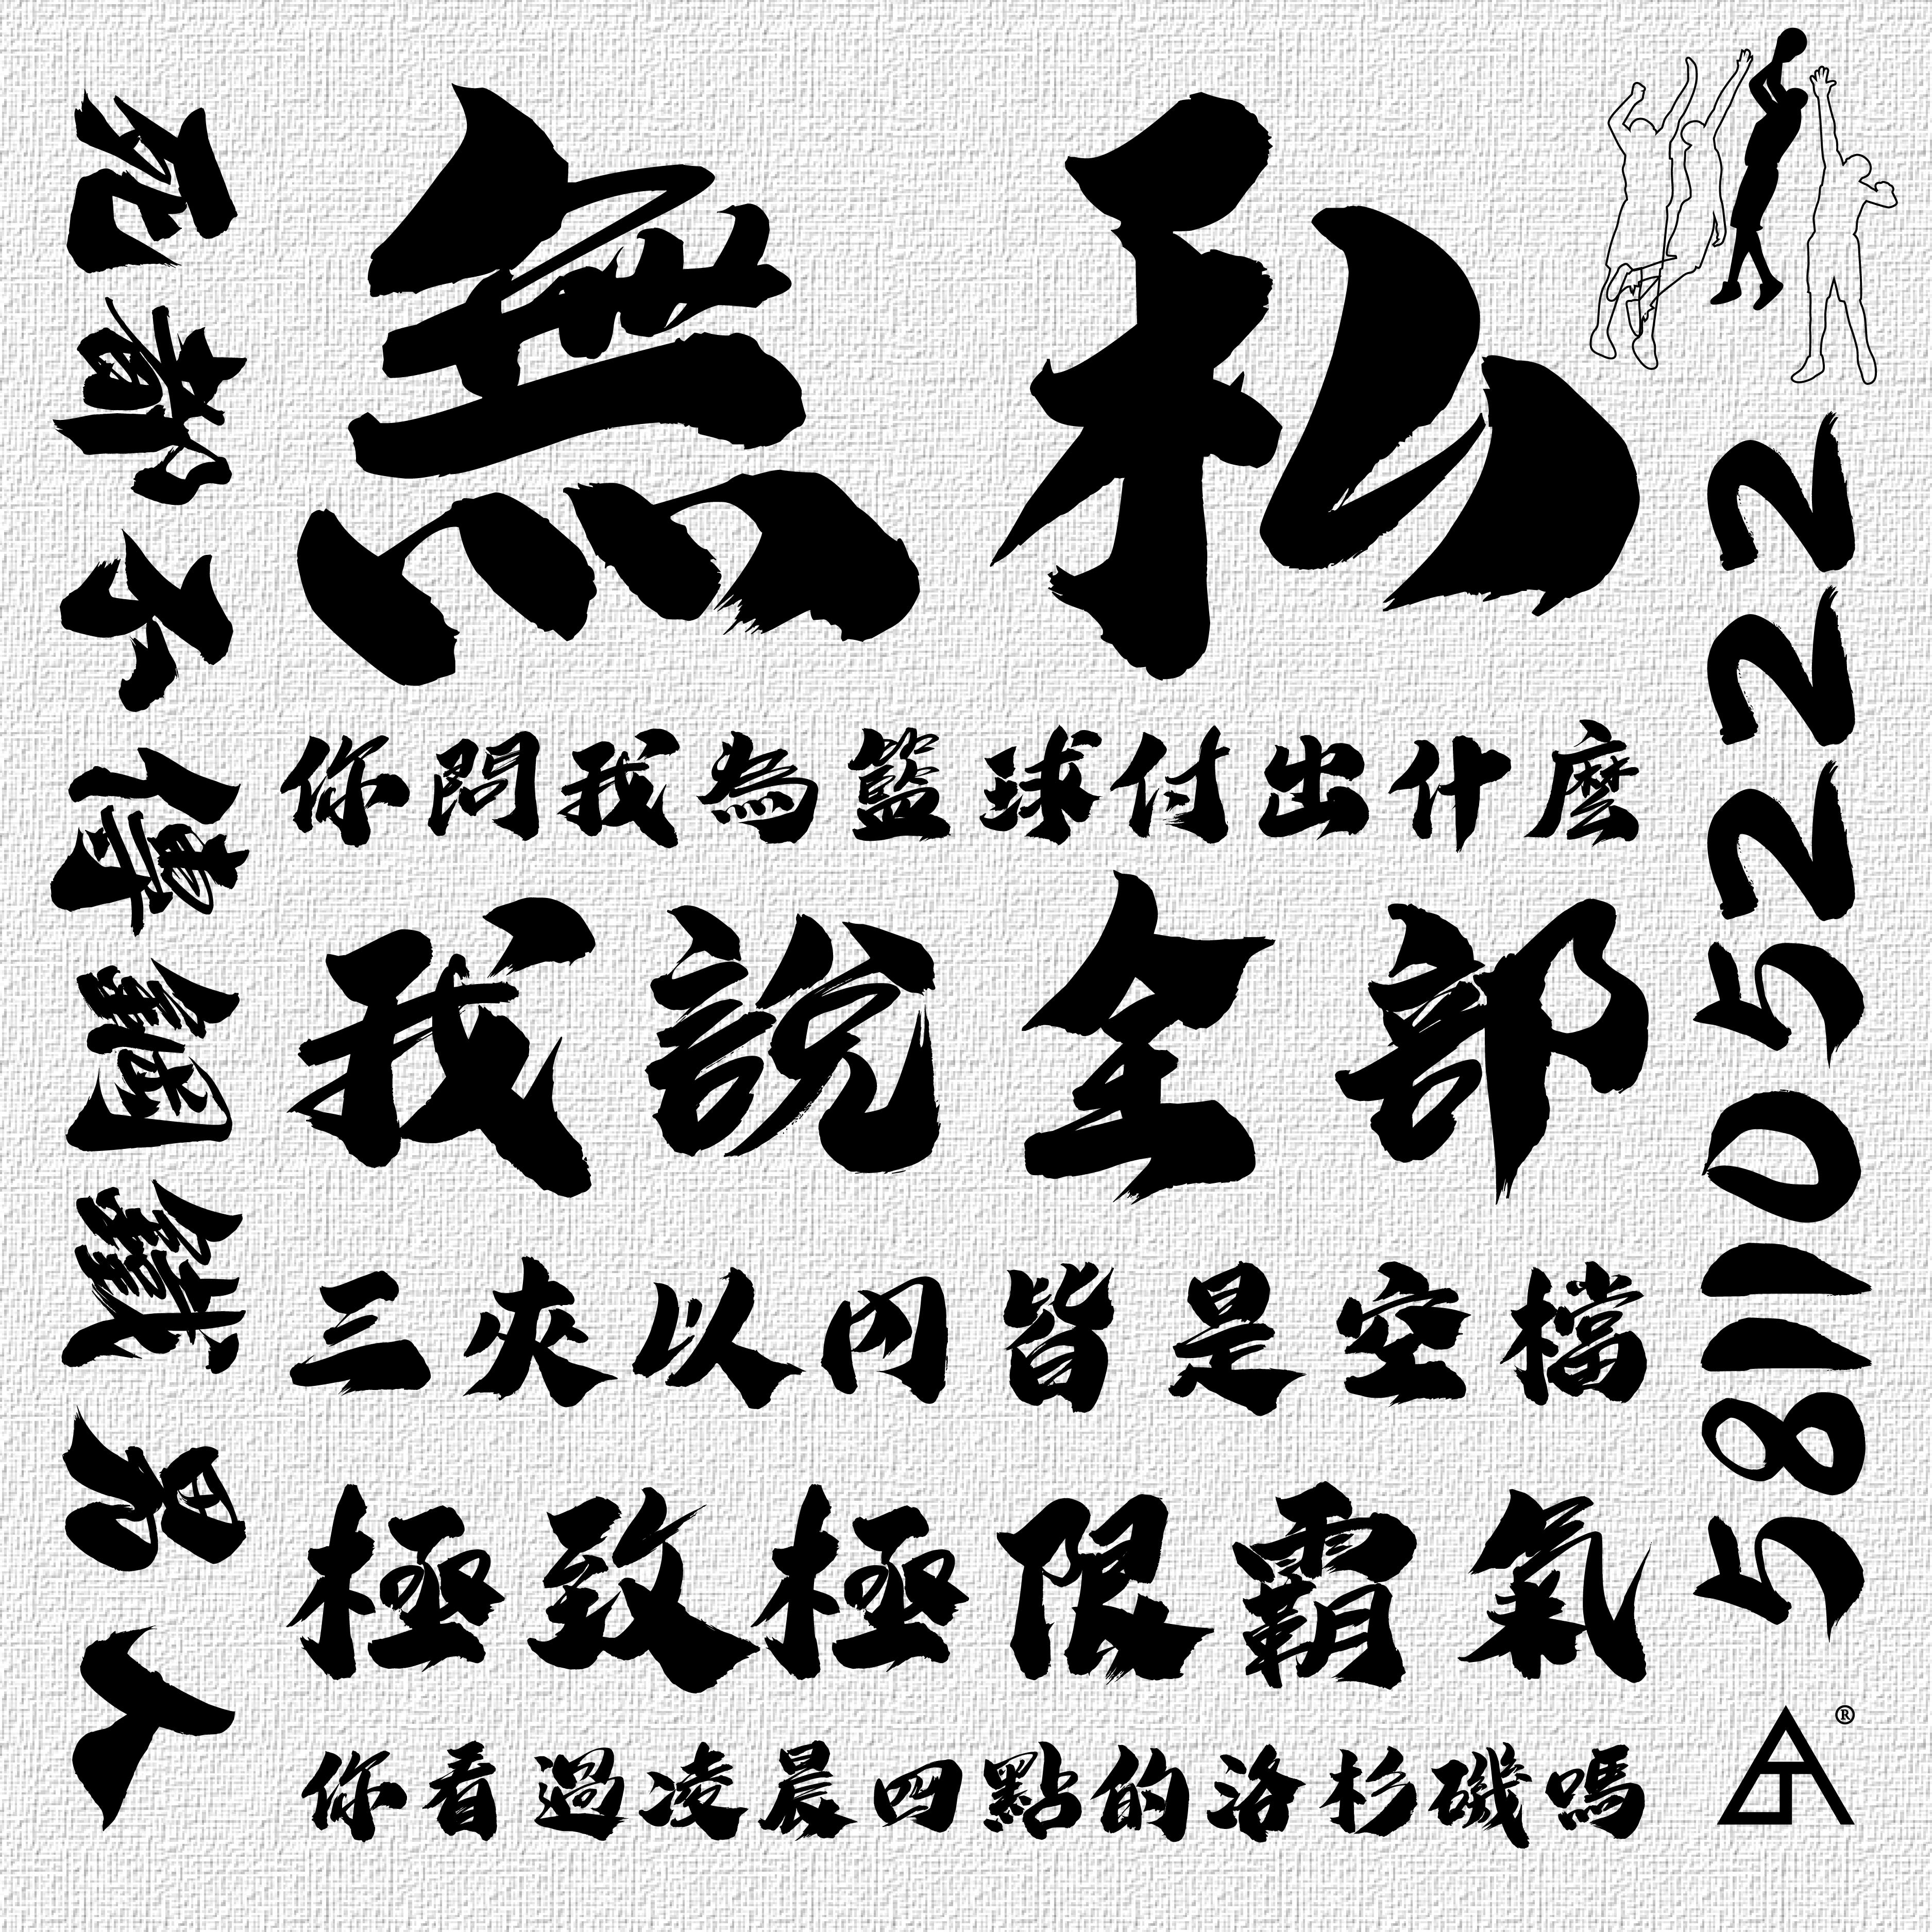 無私
你問我為籃球付出什麼
我說全部
三夾以內皆是空檔
極致極限霸氣
你看過凌晨四點的洛杉磯嗎
死都不傳鋼鐵男人
222501185
®